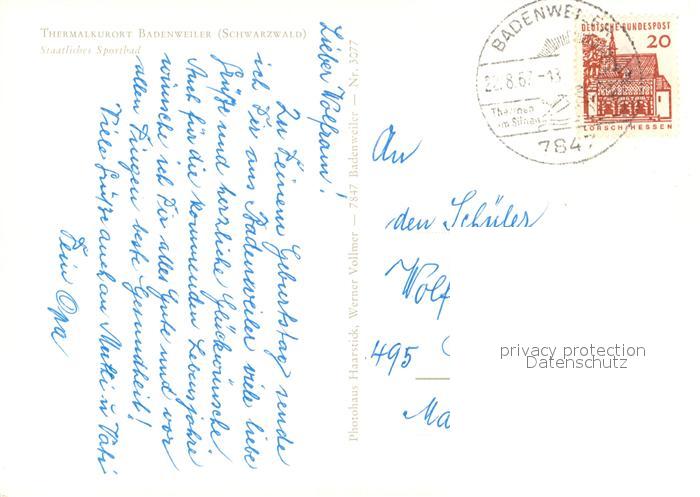 THERMALKURORT BADENWEILER (SCHWARZWALD)
Staatliches Sportbad
Lieber Wolfram!
Zu Deinem Geburtstag sende
ich Dir aus Badenweiler viele liebe
Grüße und herzliche Glückwünsche
Auch für die kommenden Lebensjahre
wünsche ich Dir alles Gute und vor
allen Dingen beste Gesundheit!
Viele Grüße auch an Mutti u Vati
Dein Opa
Photohaus Haarstick, Werner Vollmer — 7847 Badenweiler — Nr. 3077
BADENWEILER
22.8.67-13
Thermen
im Süden
7847
DEUTSCHE BUNDESPOST
20
LORSCH/HESSEN
An
den Schüler
Wolf
495
Ma
privacy protection
Datenschutz